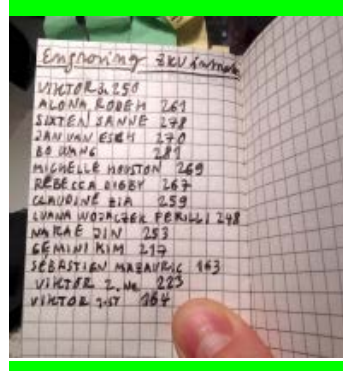 Engraving
VIKTOR 250
ALONA RODEH 261
SIXTEN SANNE 278
JAN VAN ESCH 270
BO WANG 281
MICHELLE HOUSTON 269
REBECCA DIGBY 267
CLAUDINE ZIA 259
LUANA WOJACZEK PERILLI 248
NARAE JIN 253
GEMINI KIM 217
SÉBASTIEN MAZAURIC 163
VIKTOR 2. 223
VIKTOR 1ST 164